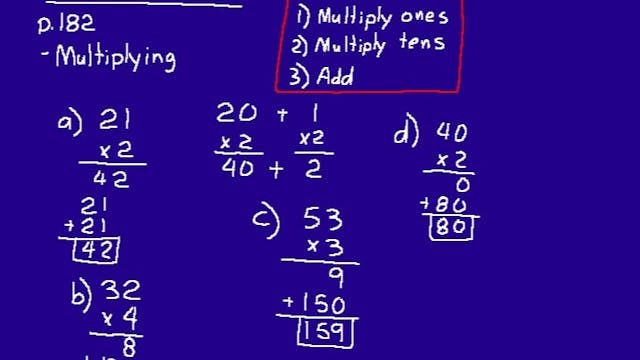 p.182
- Multiplying
1) Multiply ones
2) Multiply tens
3) Add
a) 21
x 2
42
21
+ 21
42
20 + 1
x 2 x2
40 + 2
b) 32
x 4
8
c) 53
x 3
9
+ 150
159
d) 40
x 2
0
+ 80
80